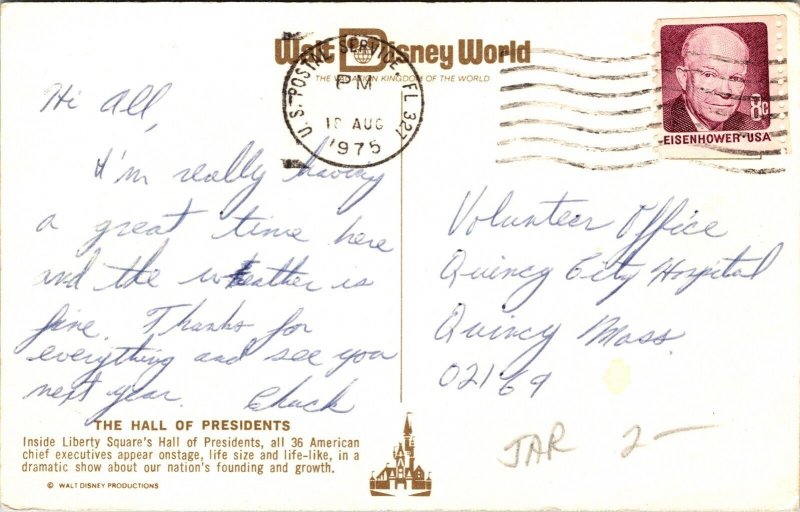 Walt Disney World
THE VACATION KINGDOM OF THE WORLD
U.S. POSTAL SERVICE FL 327
PM
18 AUG
1975
8c
EISENHOWER·USA
Hi All,
I'm really having
a great time here
and the weather is
fine. Thanks for
everything and see you
next year.
Chuck
Volunteer Office
Quincy City Hospital
Quincy Mass.
02169
THE HALL OF PRESIDENTS
Inside Liberty Square's Hall of Presidents, all 36 American
chief executives appear onstage, life size and life-like, in a
dramatic show about our nation's founding and growth.
© WALT DISNEY PRODUCTIONS
JAR 2-